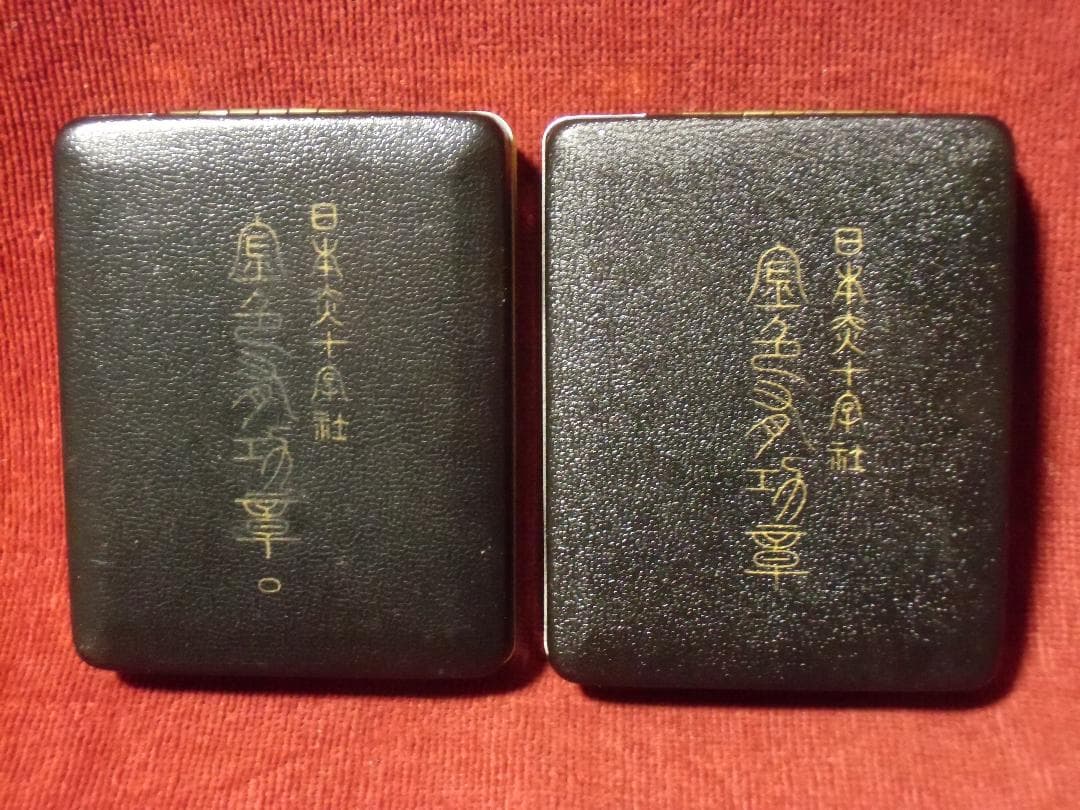 日本赤十字社
金色有功章○
日本赤十字社
金色有功章